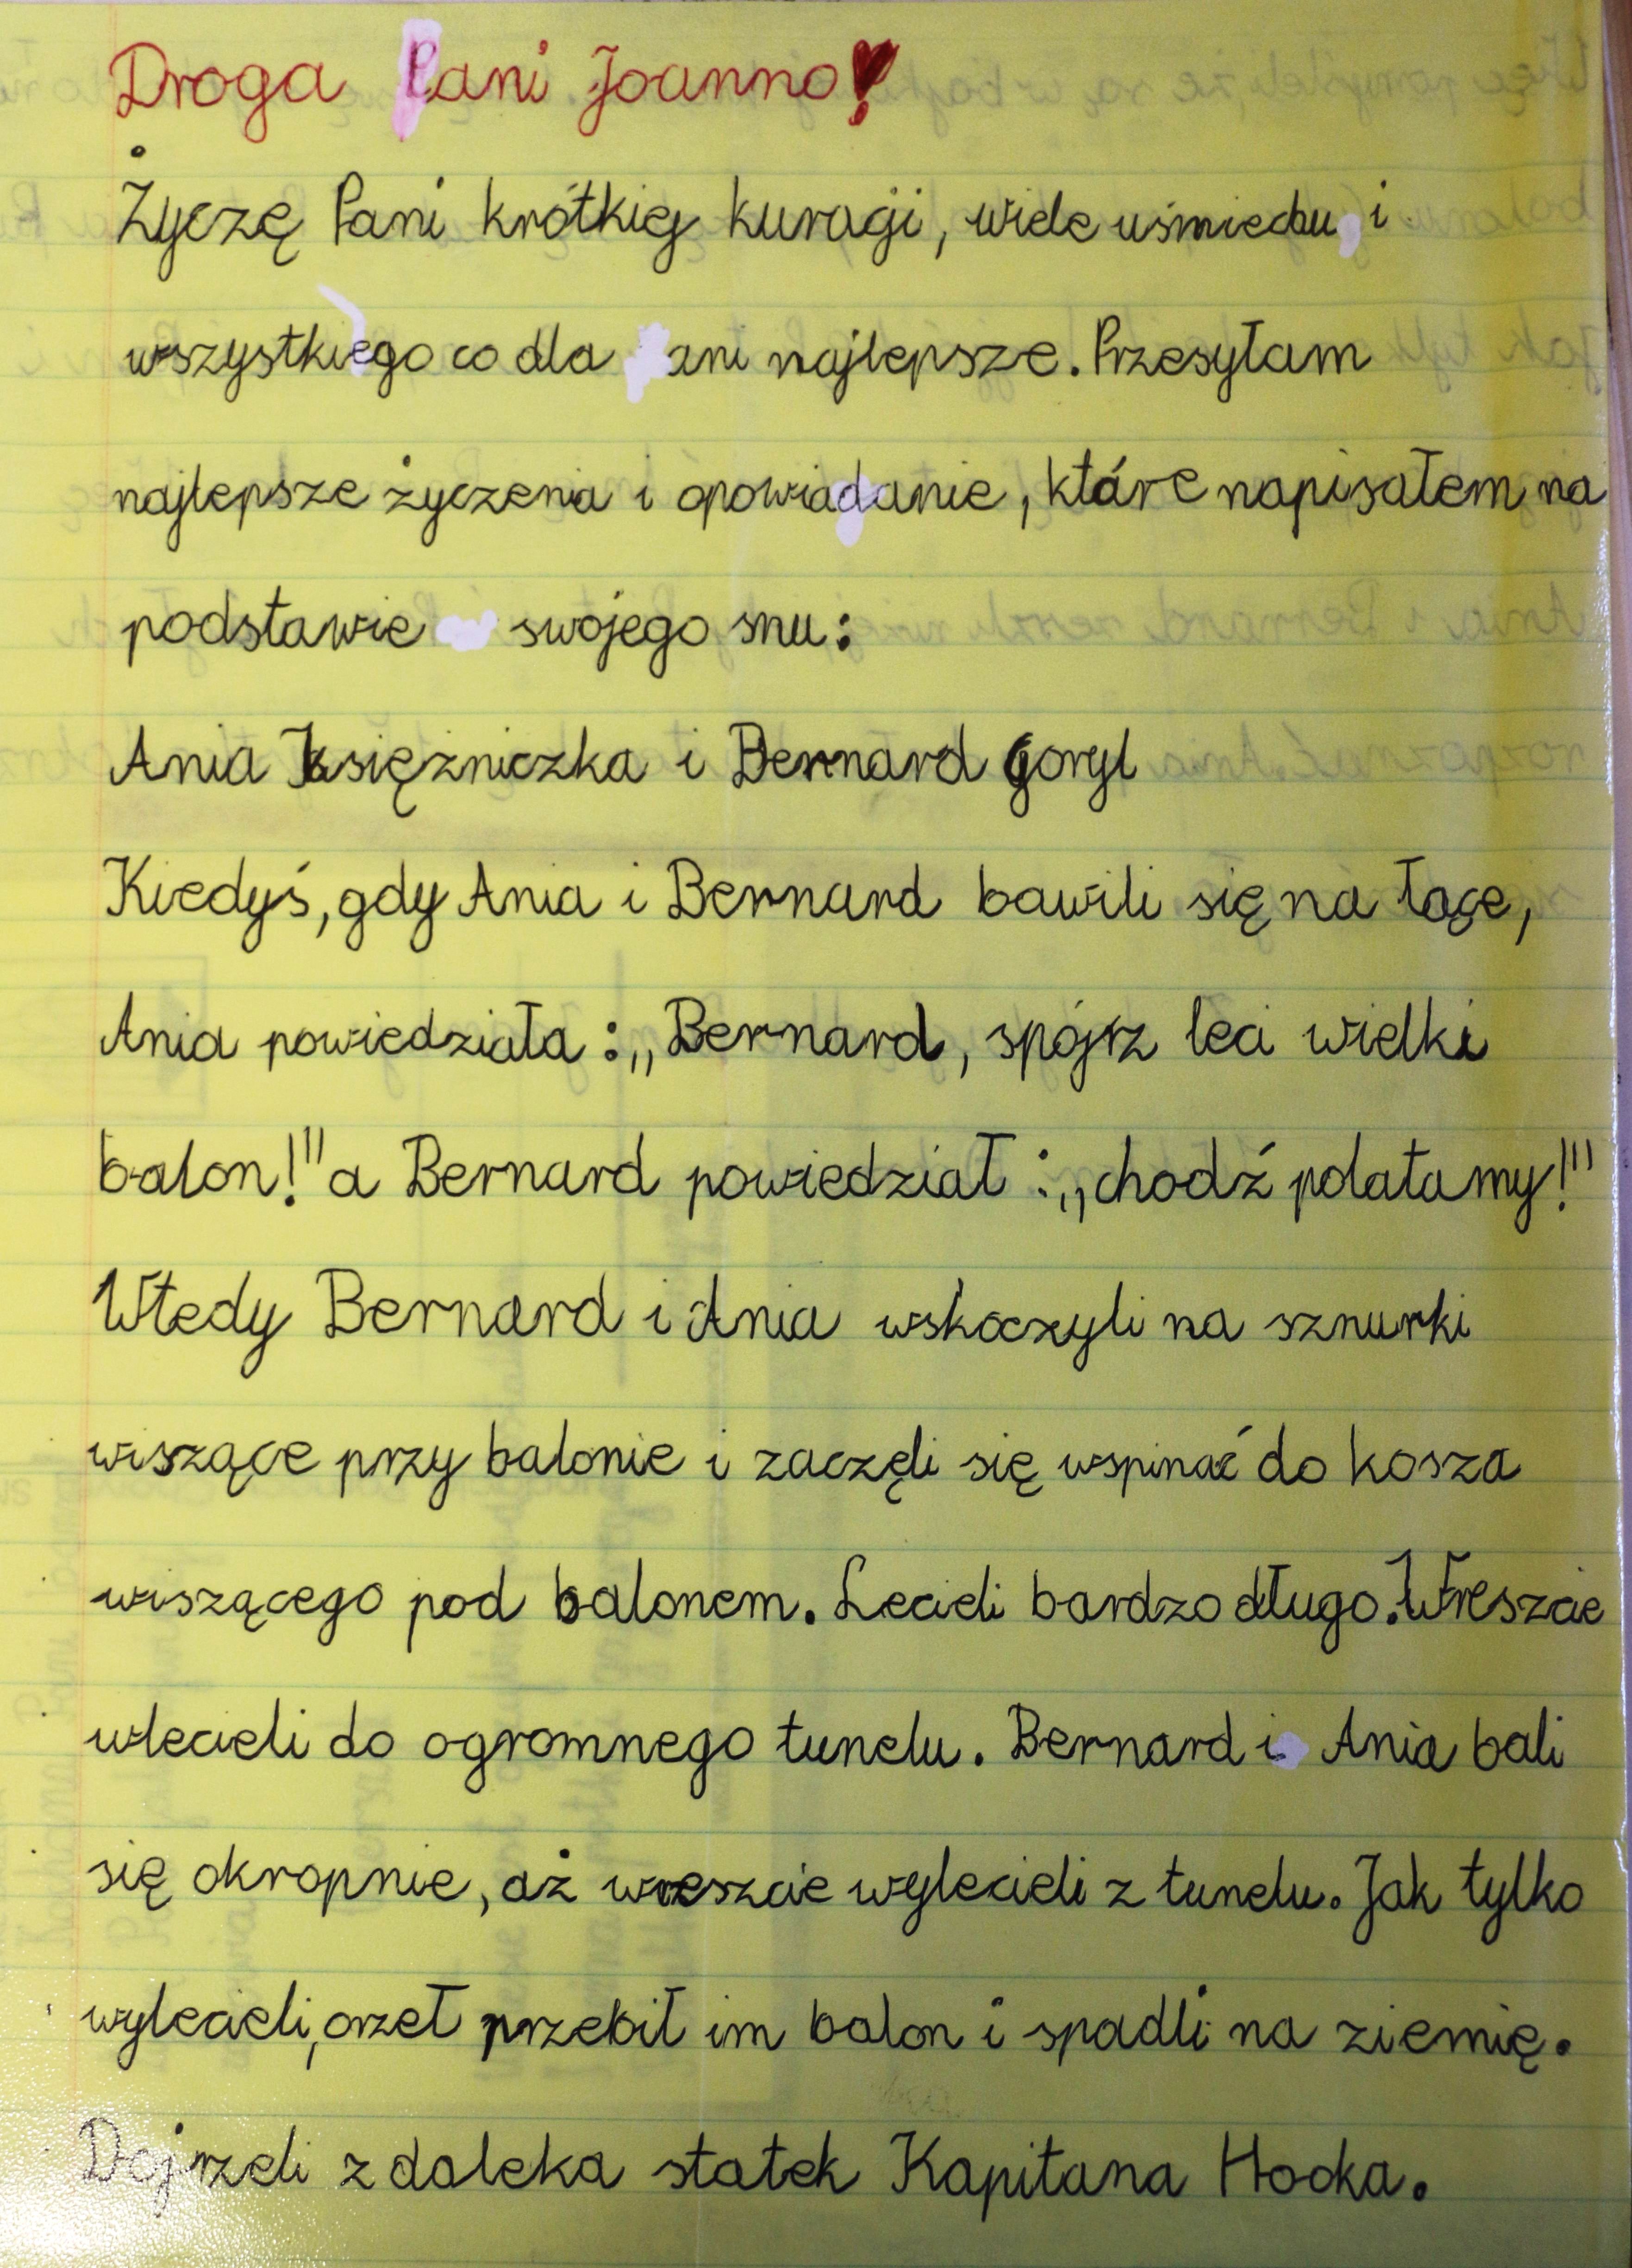 Droga Pani Joanno!
Życzę Pani krótkiej kuracji, wiele uśmiechu i
wszystkiego co dla ani najlepsze. Przesyłam
najlepsze życzenia i opowiadanie, które napisałem na
podstawie swojego snu:
Ania Księżniczka i Bernard Goryl
Kiedyś, gdy Ania i Bernard bawili się na łące,
Ania powiedziała: „Bernard, spójrz leci wielki
balon!" a Bernard powiedział: „chodź polatamy!"
Wtedy Bernard i Ania wskoczyli na sznurki
wiszące przy balonie i zaczęli się wspinać do kosza
wiszącego pod balonem. Lecieli bardzo długo. Wreszcie
wlecieli do ogromnego tunelu. Bernard i Ania bali
się okropnie, aż wreszcie wylecieli z tunelu. Jak tylko
wylecieli, orzeł przebił im balon i spadli na ziemię.
Dojrzeli z daleka statek Kapitana Hooka.